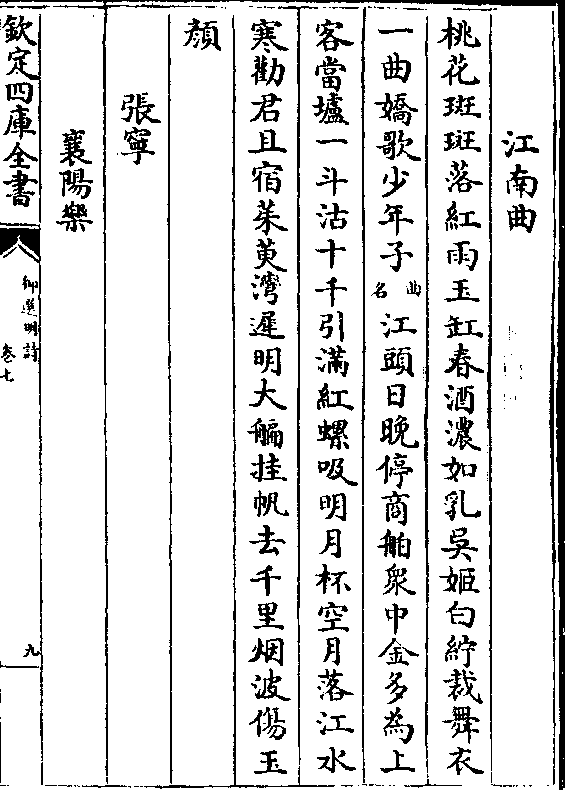 江南曲
桃花斑斑落紅雨玉缸春酒濃如乳吳姬白紵裁舞衣
一曲嬌歌少年子曲名江頭日晚停商舶衆中金多為上
客當壚一斗沽十千引滿紅螺吸明月杯空月落江水
寒勸君且宿茱萸灣遲明大艑挂帆去千里烟波傷玉
顏
張寧
襄陽樂
欽定四庫全書
御選明詩
卷七
九